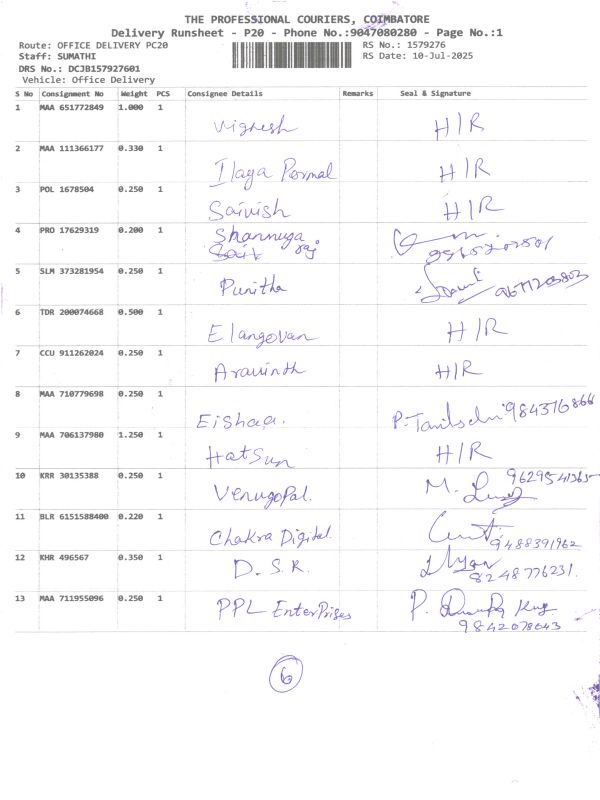 THE PROFESSIONAL COURIERS, COIMBATORE
Delivery Runsheet - P20 - Phone No.:9047080280 - Page No.:1
Route: OFFICE DELIVERY PC20 RS No.: 1579276
Staff: SUMATHI RS Date: 10-Jul-2025
DRS No.: DCJB157927601
Vehicle: Office Delivery
S No Consignment No Weight PCS Consignee Details Remarks Seal & Signature
1 MAA 651772849 1.000 1 Vignesh H/R
2 MAA 111366177 0.330 1 Ilaya Permal H/R
3 POL 1678504 0.250 1 Saivish H/R
4 PRO 17629319 0.200 1 Shanmuga
5 SLM 373281954 0.250 1 Punitha
6 TDR 200074668 0.500 1 Elangovan H/R
7 CCU 911262024 0.250 1 Aravinth H/R
8 MAA 710779698 0.250 1 Eishaa.
9 MAA 706137980 1.250 1 Hatsun H/R
10 KRR 30135388 0.250 1 Venugopal. M.
11 BLR 6151588400 0.220 1 Chakra Digital. 9488391962
12 KHR 496567 0.350 1 D. S. R. 8248776231.
13 MAA 711955096 0.250 1 PPL EnterPrises P.
9842078643
6